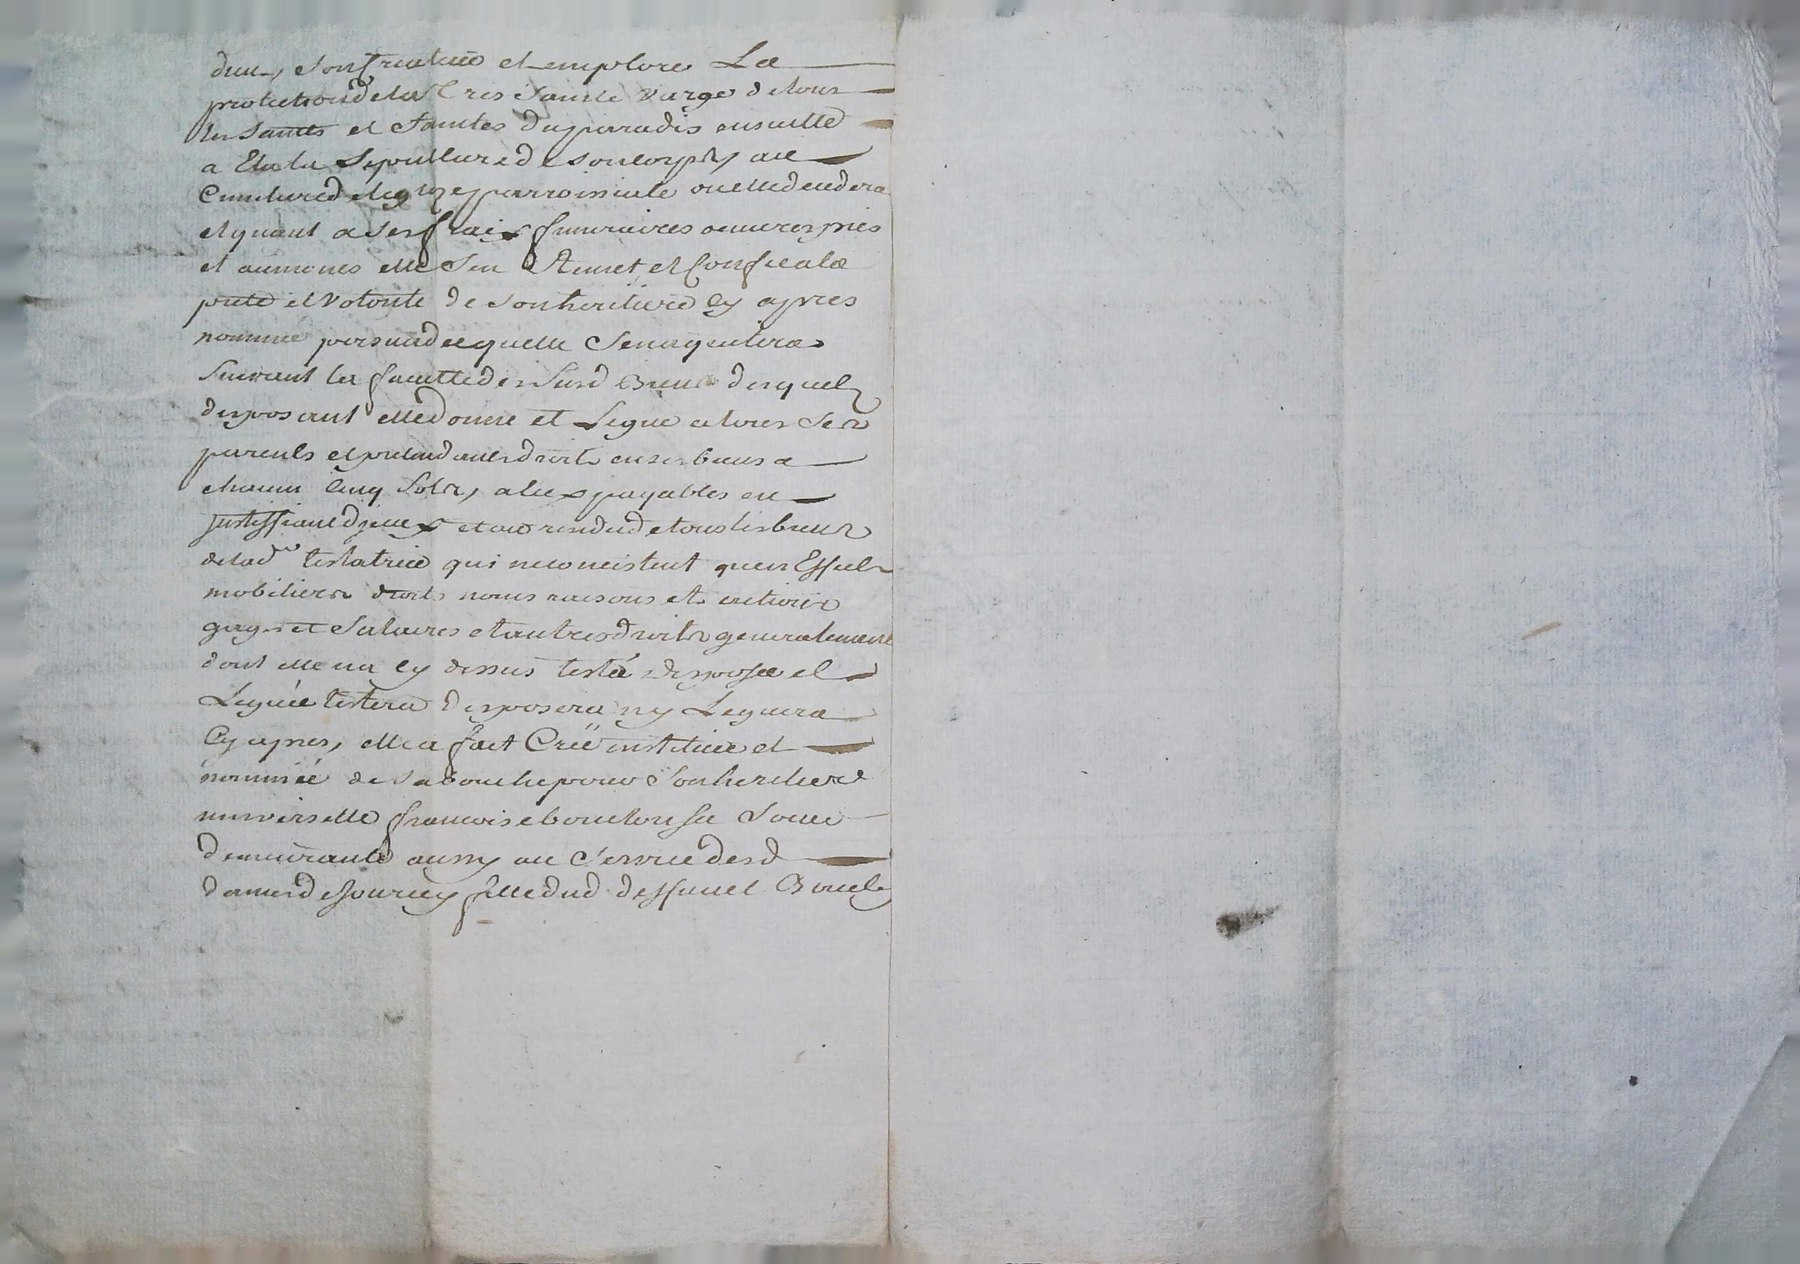 dieu, son createur et implore La
protection de la Tres Sainte vierge de tous
les Saints et Saintes du paradis ensuitte
a Elu la Sepulture de son corps au
Cimetiere de leglize parroissiale ou elle decedera
et quant a ses fraix funeraires oeuvres pies
et aumones elle Sen Remet et Confie a la
pieté et volonté de son heritiere Cy apres
nommée persuadee quelle Senaquitera
Suivant les facultés des Susd Biens desquels
disposant elle donne et Legue a tous Ses
parents et pretendants droits en ses biens a
chacun Cinq Sols, a eux payables en
justiffiant d'jceux et au residu de tous les biens
de lad testatrice qui ne consistent quen Effets
mobiliers droits noms raisons et actions
gages et Salaires et autres droits generalement
dont elle na Cy dessus testé disposée et
Leguée testera disposera ny Leguera
Cy apres, elle a fait Créé instituée et
nommée de Sa bouche pour Son heritiere
universelle francoise bouchou sa Soeur
demeurante aussy au Service desd
dames de fille dud deffunct